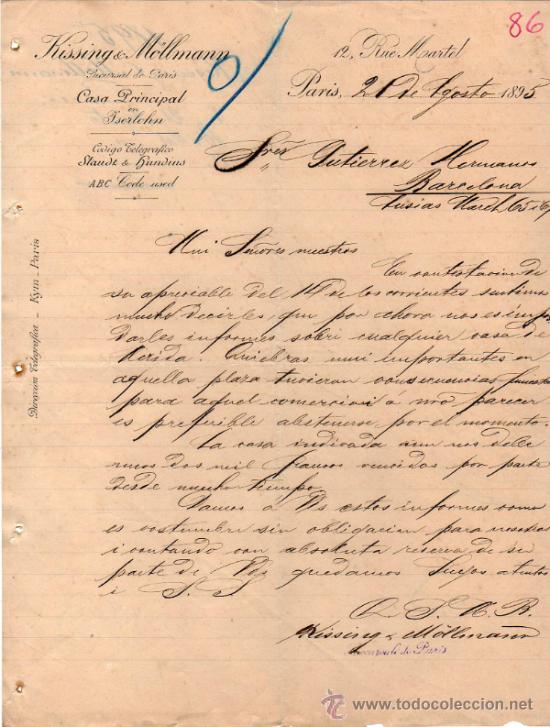 86
Kissing & Möllmann
Sucursal de Paris
Casa Principal
en
Iserlohn
Código Telegrafico
Staudt & Hundius
ABC Code used
12, Rue Martel
Paris, 21 de Agosto 1895
Sres Gutierrez Hermanos
Barcelona
Ausias March 65 i 67
Direccion Telegrafica - Kym - Paris
Mui Señores nuestros
En contestacion de
su apreciable del 14 de los corrientes sentimos
mucho decirles, que por ahora nos es impo
darles informes sobre cualquier casa de
Merida. Quiebras mui importantes en
aquella plaza tuvieron consecuencias funestas
para aquel comercio i á mio parecer
es preferible abstenerse por el momento.
La casa indicada aun nos debe
unos dos mil francos vencidos por parte
desde mucho tiempo.
Damos a Vds estos informes como
es costumbre sin obligacion para nosotros
i contando con absoluta reserva de su
parte de Vds quedamos Suyos atentos
i S. S.
Q. S. M. B.
Kissing & Möllmann
Sucursale de Paris
todocoleccion.net